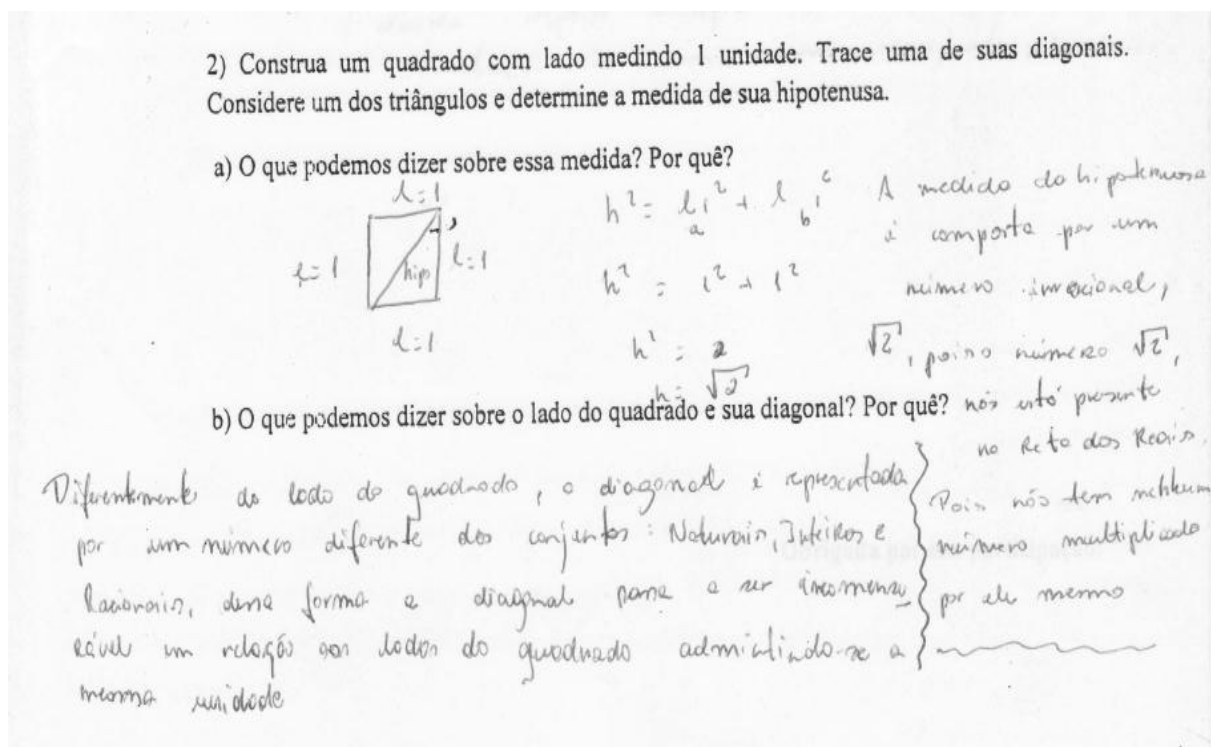 2) Construa um quadrado com lado medindo 1 unidade. Trace uma de suas diagonais.
Considere um dos triângulos e determine a medida de sua hipotenusa.
a) O que podemos dizer sobre essa medida? Por quê?
l=1
l=1
hip
l=1
l=1
h² = l1² + l
a b
h² = 1² + 1²
h = 2
h = √2
A medida da hipotenusa
é comporta por um
número irracional,
√2, pois o número √2,
não está presente
na Reta dos Reais.
Pois não tem nenhum
número multiplicado
por ele mesmo
b) O que podemos dizer sobre o lado do quadrado e sua diagonal? Por quê?
Diferentemente do lado do quadrado, a diagonal é representada
por um número diferente dos conjuntos: Naturais, Inteiros e
Racionais, dessa forma a diagonal passa a ser incomensu
rável em relação aos lados do quadrado admitindo-se a
mesma unidade